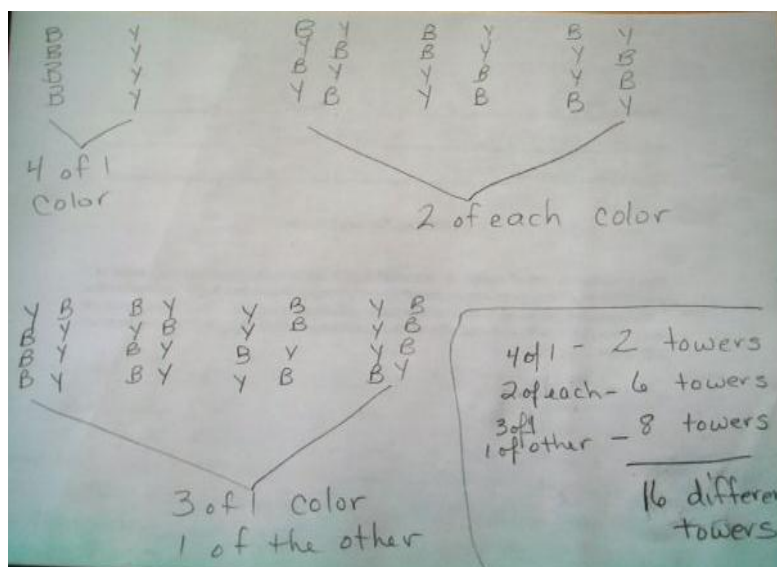 B Y B Y B Y B Y
B Y Y B B Y Y B
B Y B Y Y B Y B
B Y Y B Y B B Y
4 of 1
Color
2 of each color
Y B B Y Y B Y B
B Y Y B Y B Y B
B Y B Y B Y Y B
B Y B Y Y B B Y
3 of 1 color
1 of the other
4 of 1 - 2 towers
2 of each - 6 towers
3 of 1
1 of other - 8 towers
16 differen
towers